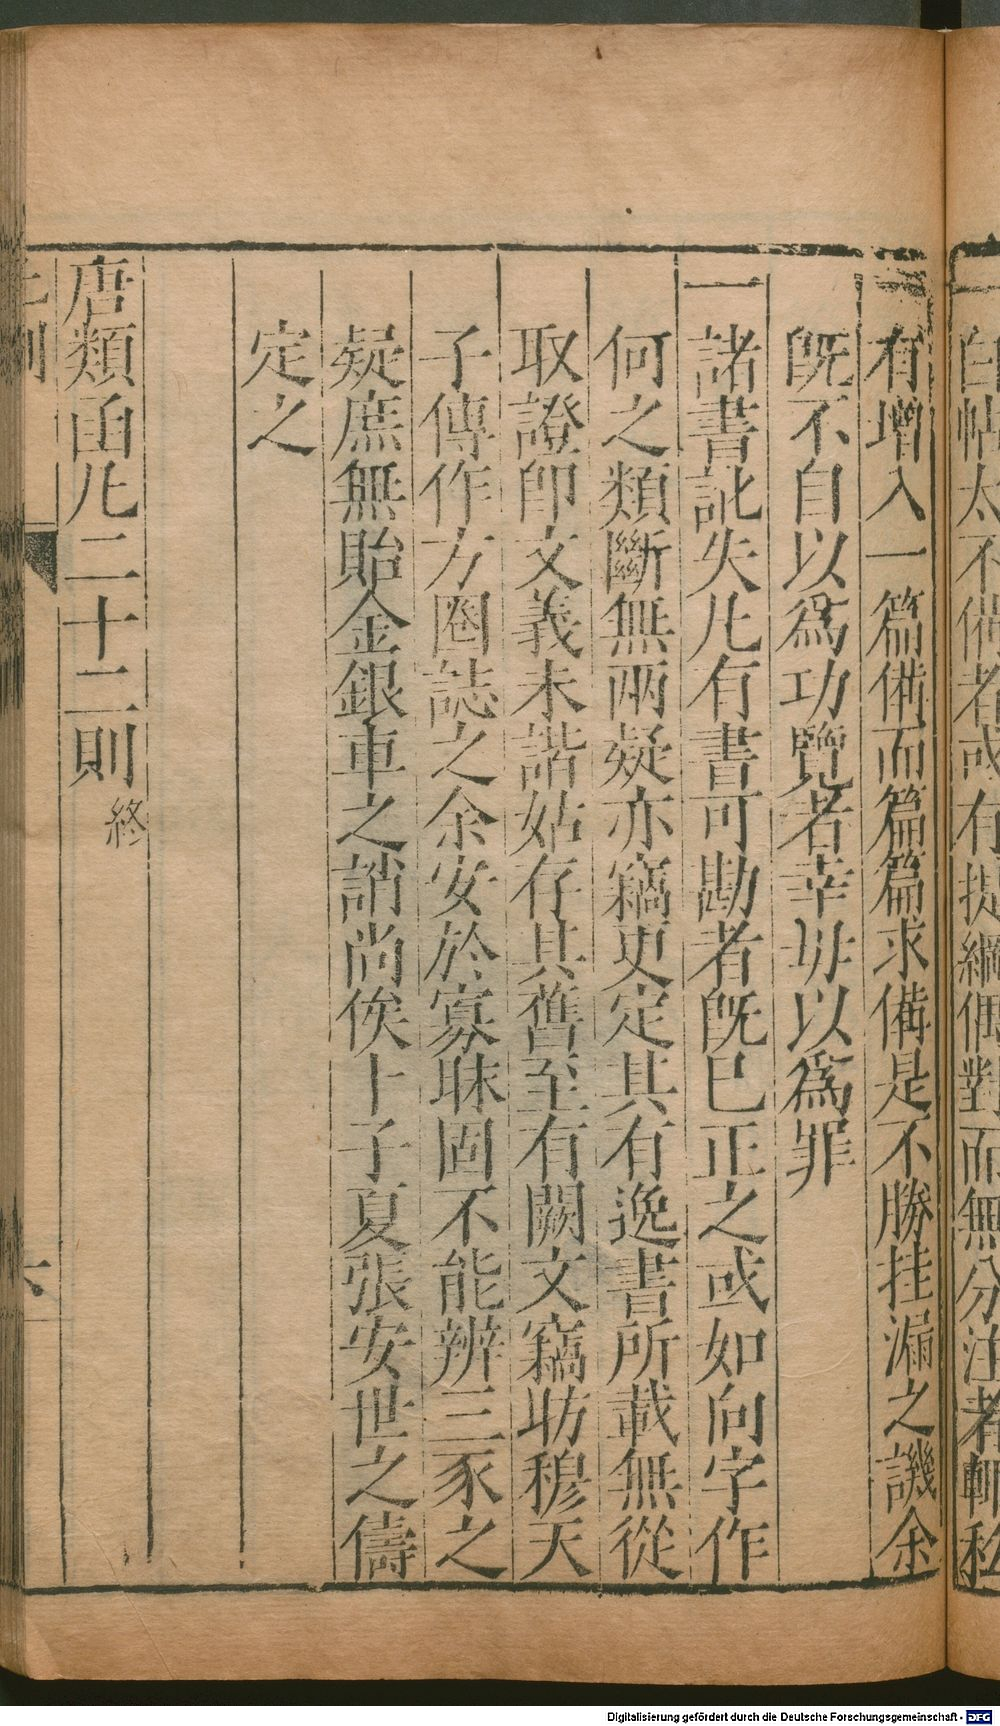 一白帖太不備者或有提綱偶對而無分注者輒私
有增入一篇備而篇篇求備是不勝挂漏之譏余
旣不自以爲功覽者幸毋以爲罪
一諸書訛失凡有書可勘者旣已正之或如向字作
何之類斷無兩疑亦竊更定其有逸書所載無從
取證卽文義未諧姑存其舊至有闕文竊昉穆天
子傳作方圈誌之余安於寡昧固不能辨三豕之
疑庶無貽金銀車之誚尚俟卜子夏張安世之儔
定之
唐類函凡二十二則終
六
Digitalisierung gefördert durch die Deutsche Forschungsgemeinschaft - DFG